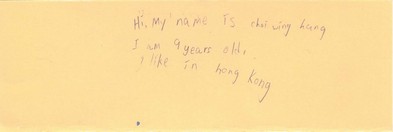 Hi, My name is choi wing hung
I am 9 years old,
I like in hong Kong